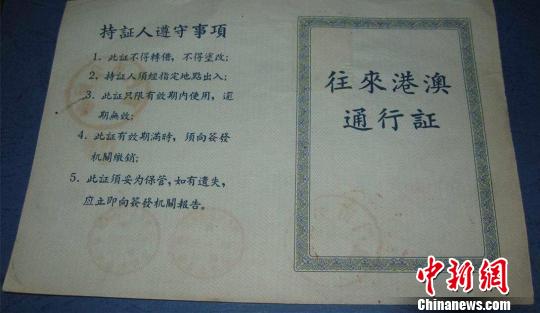 持証人遵守事項
1．此証不得轉借，不得塗改；
2．持証人須經指定地點出入；
3．此証只限有效期内使用，逾
期無效；
4．此証有效期滿時，須向簽發
机關繳銷；
5．此証須妥为保管，如有遺失，
应立即向簽發机關報告。
往來港澳
通行証
中新网
Chinanews.com